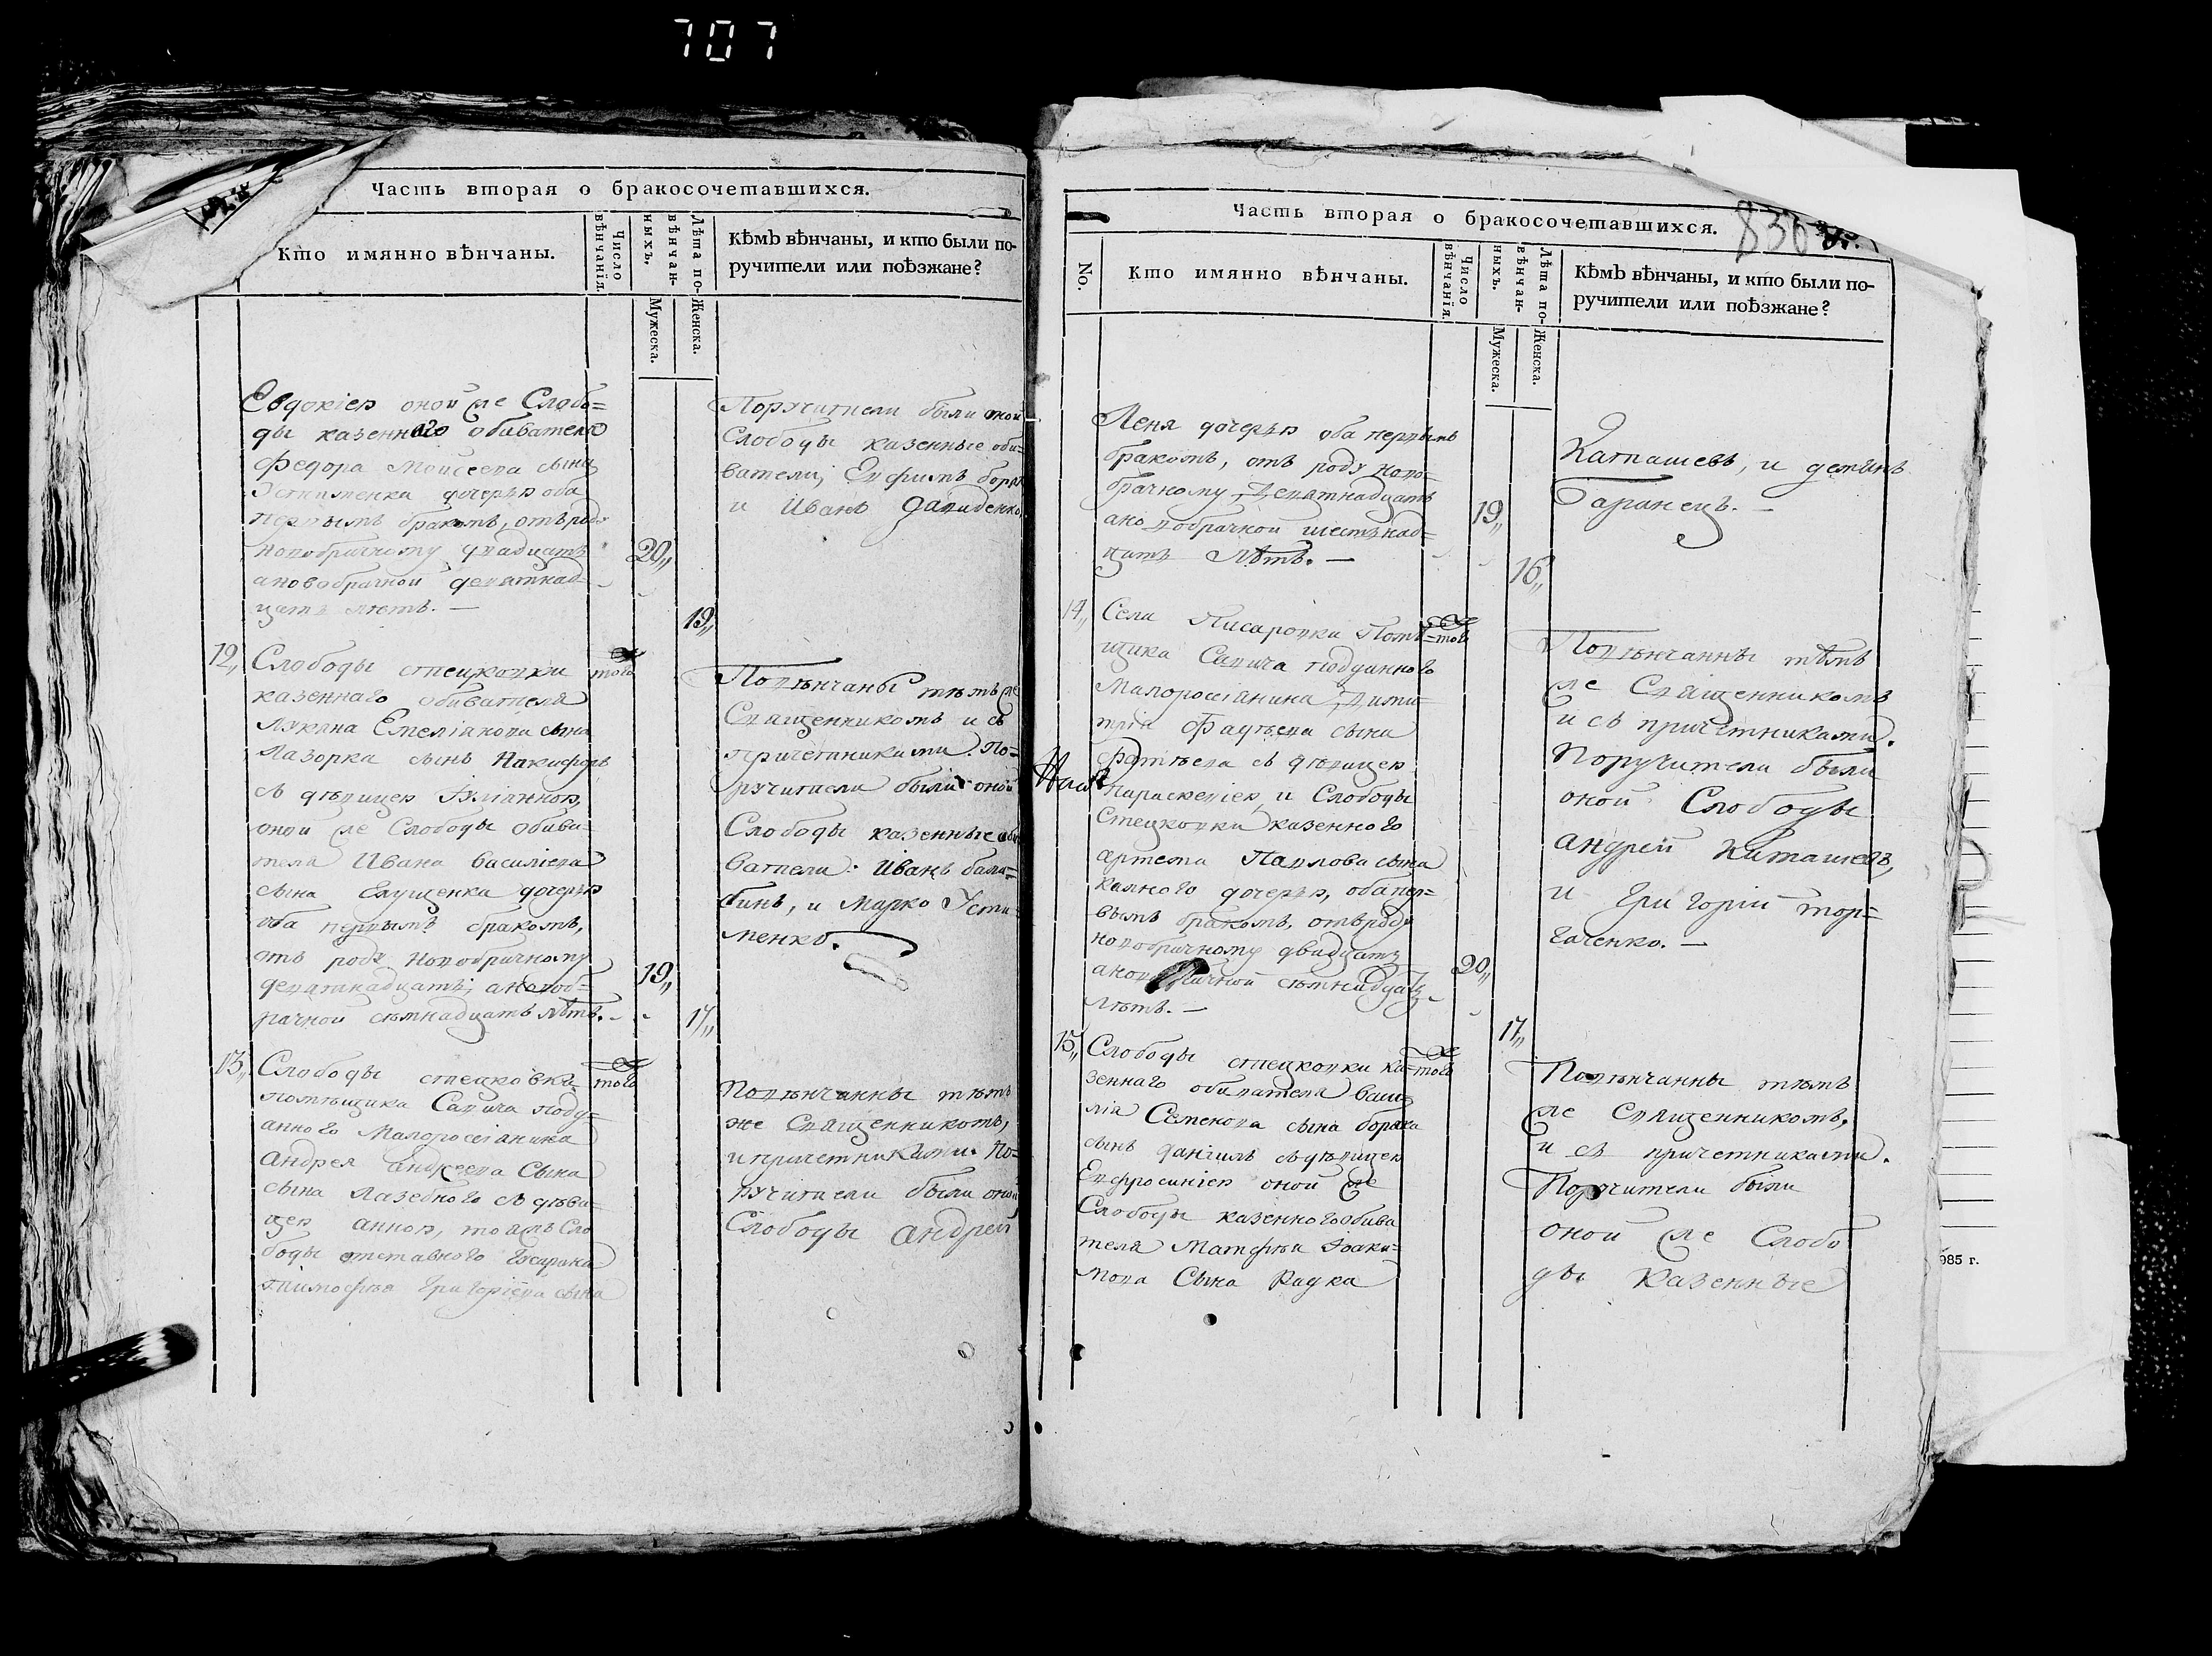 707
Часть вторая о бракосочетавшихся.
Кто имянно вѣнчаны.
Число вѣнчанїя.
Лѣта повѣнчанныхъ.
Мужеска.
Женска.
Кѣмъ вѣнчаны, и кто были по-
ручители или поѣзжане?
Евдокіею оной же Слобо=
ды казеннаго обивателя
Федора Моисеева сына
Устименка дочерью оба
первымъ бракомъ, отъ роду
новобрачному двадцать
20,,
а новобрачной девятнад=
цать лѣтъ. —
19,,
Поручители были оной
Слободы казенные оби=
ватели, Ефимъ
и Иванъ Давиденко
12,, Слободы стецковки
того
казеннаго обивателя
Лукяна Емеліянова сына
Лазорка сынъ Никифоръ
съ дѣвицею Іуліанною,
оной же Слободы обива=
теля Ивана Василіева
сына дочерью
оба первымъ бракомъ,
отъ роду Новобрачному
девятнадцать, а новоб=
19,,
рачной сѣмнадцать Лѣтъ. –
17,,
Повѣнчаны тѣмъ же
Священникомъ и съ
причетниками. По=
ручители были оной
Слободы казенные оби
ватели: Иванъ
и Марко Усти=
менко.
13,, Слободы стецковки
того
помѣщика Савича подд=
анного Малоросіянина
Андрея Андреева Сына
сына Лазебного съ дѣви=
цею анною, тояжъ Сло
боды отставного
тимофѣя Григоріева сына
Повѣнчанны тѣмъ
же Священникомъ,
и причетниками. По=
ручители были оной
Слободы андрей
Часть вторая о бракосочетавшихся.
836
No.
Кто имянно вѣнчаны.
Число вѣнчанїя.
Лѣта повѣнчанныхъ.
Мужеска.
Женска.
Кѣмъ вѣнчаны, и кто были по-
ручители или поѣзжане?
Леня дочерью оба первымъ
бракомъ, отъ роду ново=
брачному Девятнадцать
19,,
а новобрачной шестьнад=
цать Лѣтъ. —
16,,
Каташевъ, и демянъ
Таранецъ. —
14,, Села Писаровки Помѣ=
того
щика Савича подданного
Малоросіянина Дими=
трія сына
съ дѣвицею
Параскевіею, и Слободы
Стецковки казенного
артема Павлова сына
дочерью, оба пер=
вымъ бракомъ, отъ роду
новобрачному двадцать
20,,
сѣмнадцать
лѣтъ. —
17,,
Повѣнчанны тѣмъ
же Священникомъ
и съ причетниками.
Поручители были
оной Слободы
андрей Каташевъ,
и Григорій тор=
гаченко. —
15,, Слободы стецковки ка=
того
зеннаго обивателя Васи
лія Семенова сына
сынъ даніилъ съ дѣвицею
Евфросиніею оной же
Слободы казенного обива
теля Матфѣя Іоаки=
мова Сына Радка
Повѣнчанны тѣмъ
же Священникомъ,
и съ причетниками.
Поручители были
оной же Слобо
ды Казенные
985 г.